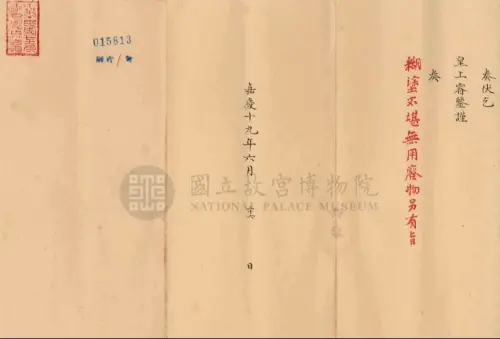 奏伏乞
皇上睿鑒謹
奏
糊塗不堪無用廢物另有旨
嘉慶十九年六月 日
015813
國立故宮博物院
NATIONAL PALACE MUSEUM